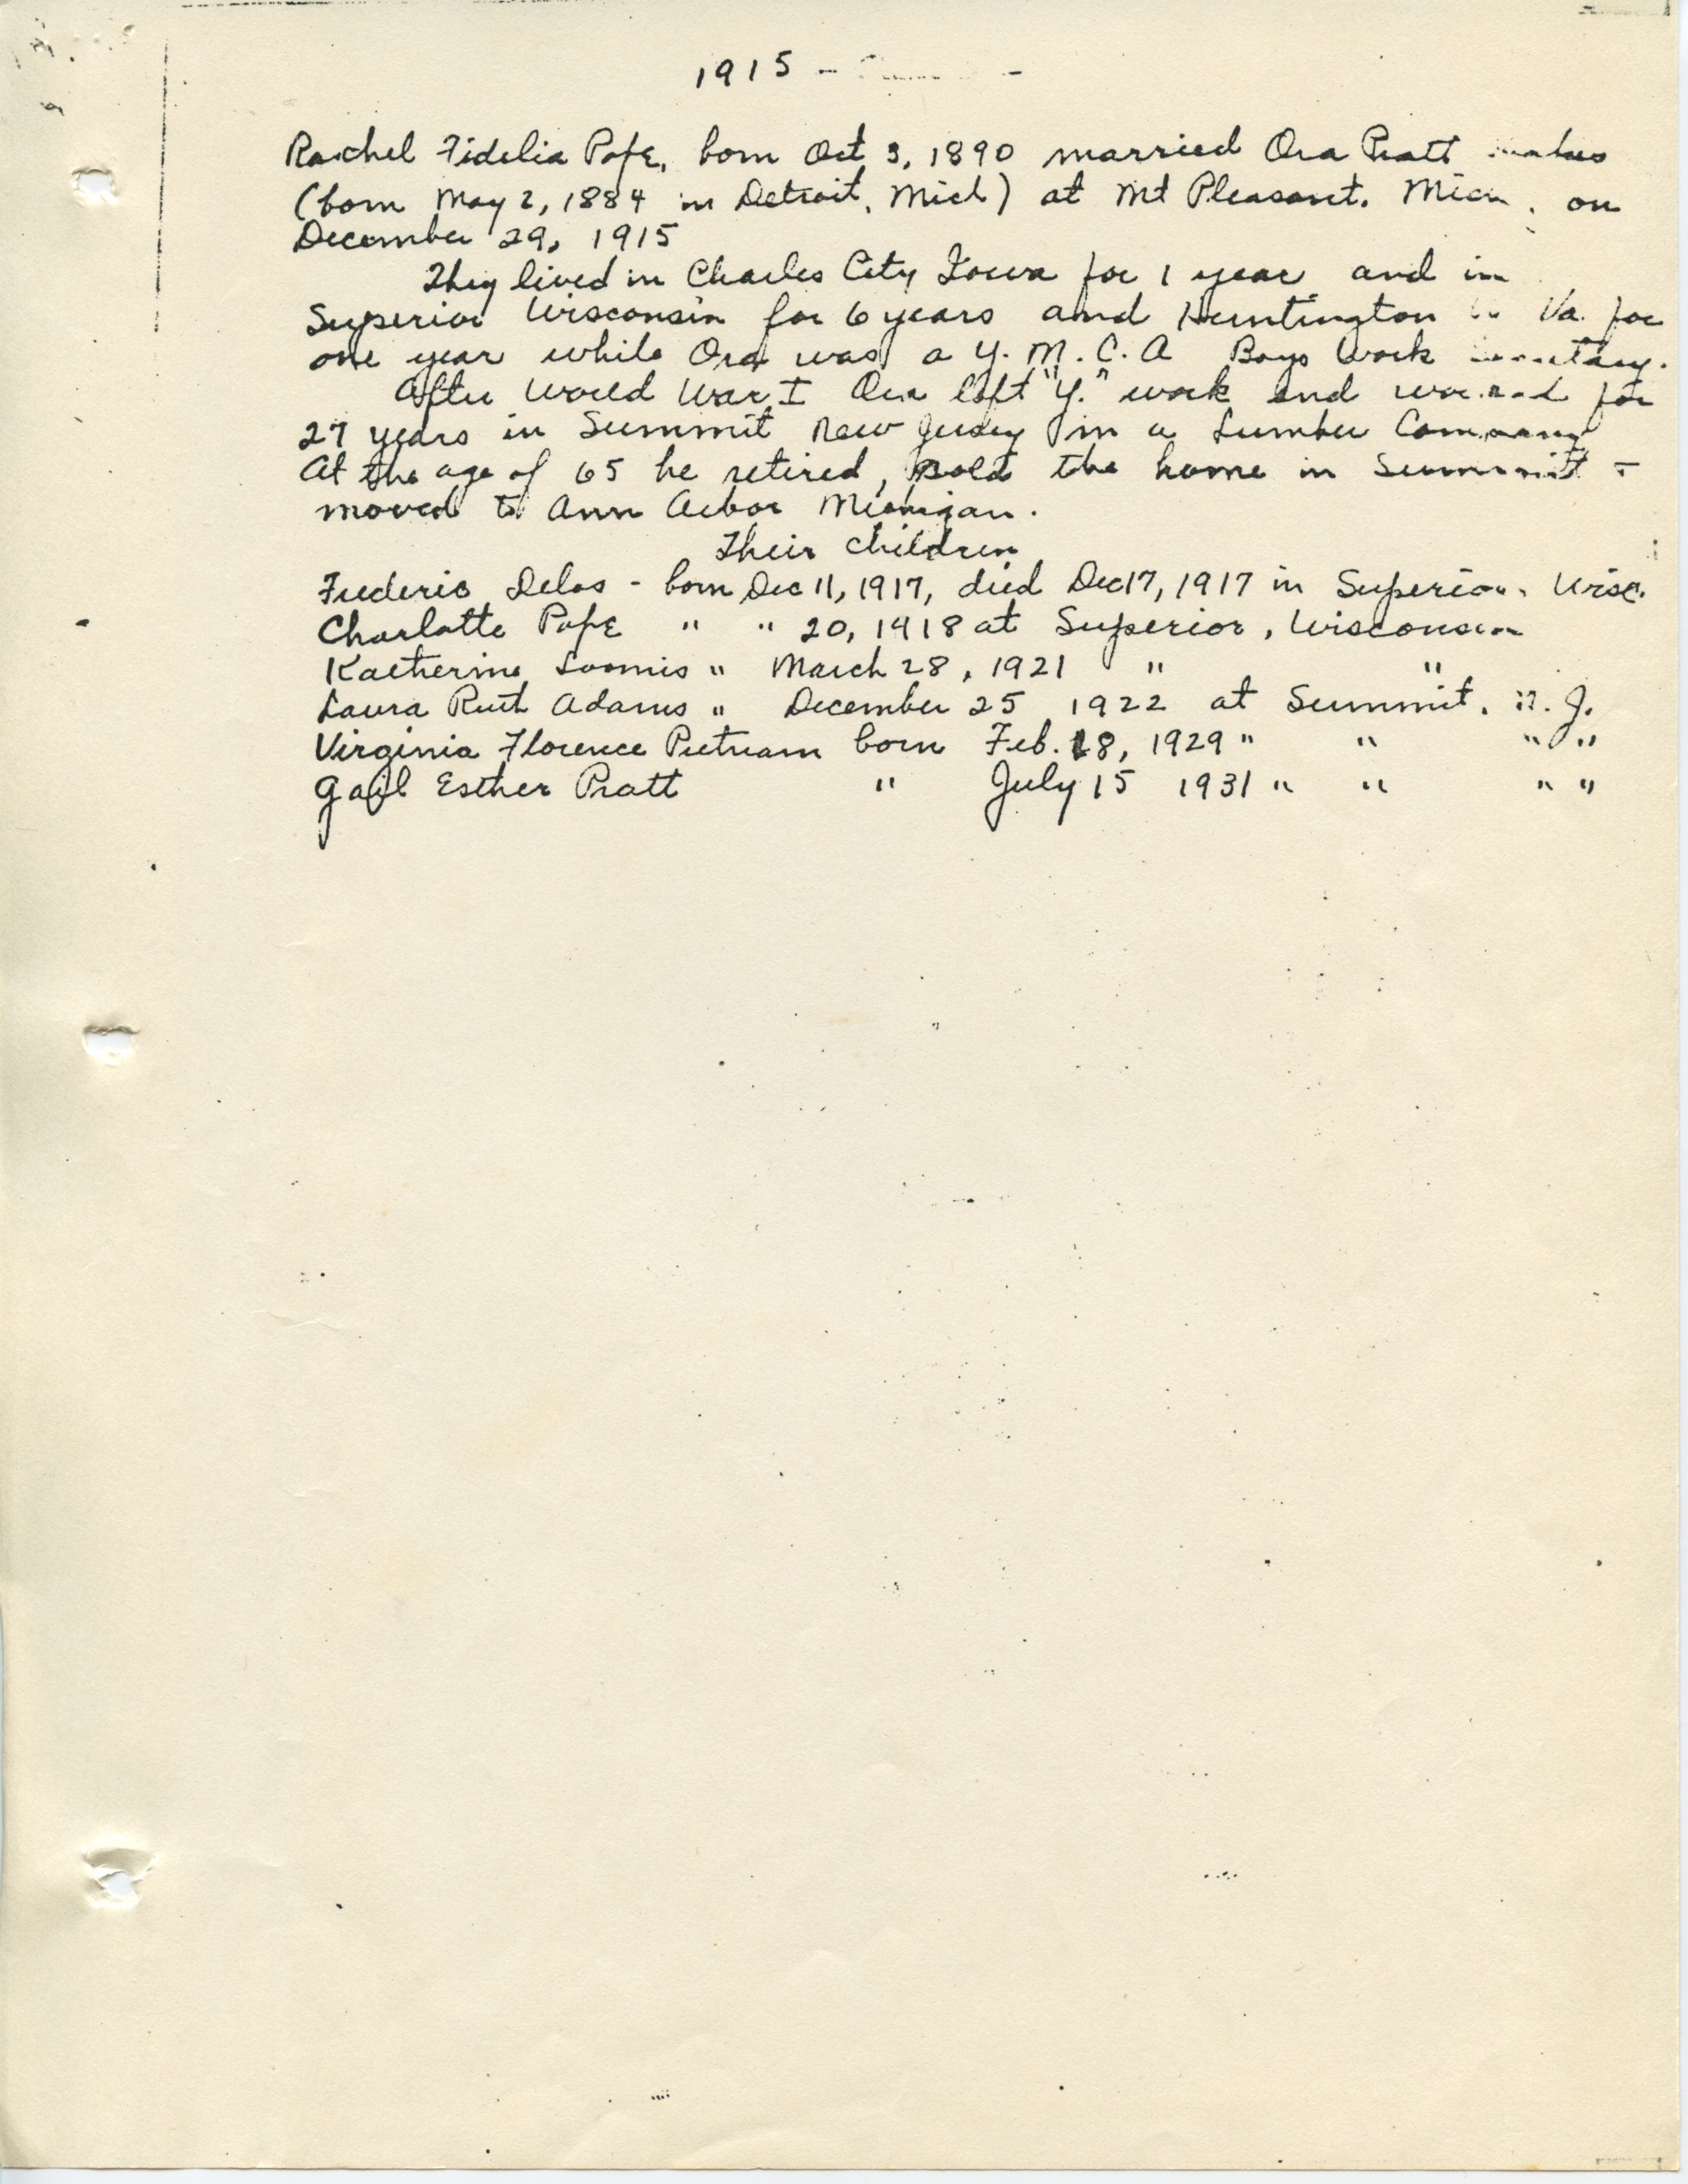 1915 -
Rachel Fidelia Pope, born Oct 3, 1890 married Ora Pratt
(born May 2, 1884 in Detroit, Mich) at Mt Pleasant. Mich, on
December 29, 1915
They lived in Charles City Iowa for 1 year and in
Superior Wisconsin for 6 years and Huntington Va. for
one year while Ora was a Y. M. C. A Boys Work
After World War I Ora left "Y." work and worked for
27 years in Summit New Jersey in a Lumber Company
At the age of 65 he retired, sold the home in Summit +
moved to Ann Arbor Michigan.
Their children
Frederic Delos - born Dec 11, 1917, died Dec 17, 1917 in Superior, Wisc.
Charlotte Pope " " 20, 1918 at Superior, Wisconsin
Katherine Loomis " March 28, 1921 " "
Laura Ruth Adams " December 25 1922 at Summit, N. J.
Virginia Florence Putnam born Feb. 18, 1929 " " " "
Gail Esther Pratt " July 15 1931 " " " "